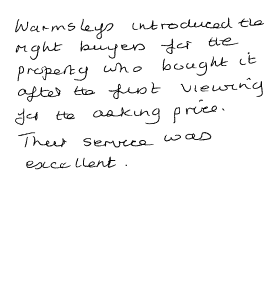 Warmsleys introduced the
right buyers for the
property who bought it
after the first viewing
for the asking price.
Their service was
excellent.